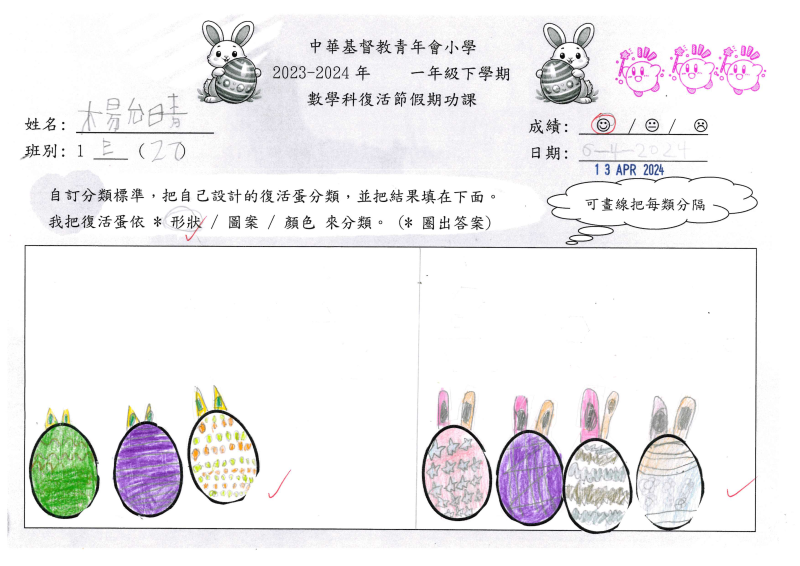 中華基督教青年會小學
2023-2024 年 一年級下學期
數學科復活節假期功課
姓名: 楊 晴
成績: / /
班別: 1 (27)
日期: 6-4-2024
13 APR 2024
自訂分類標準，把自己設計的復活蛋分類，並把結果填在下面。
我把復活蛋依 * 形狀 / 圖案 / 顏色 來分類。 (* 圈出答案)
可畫線把每類分隔